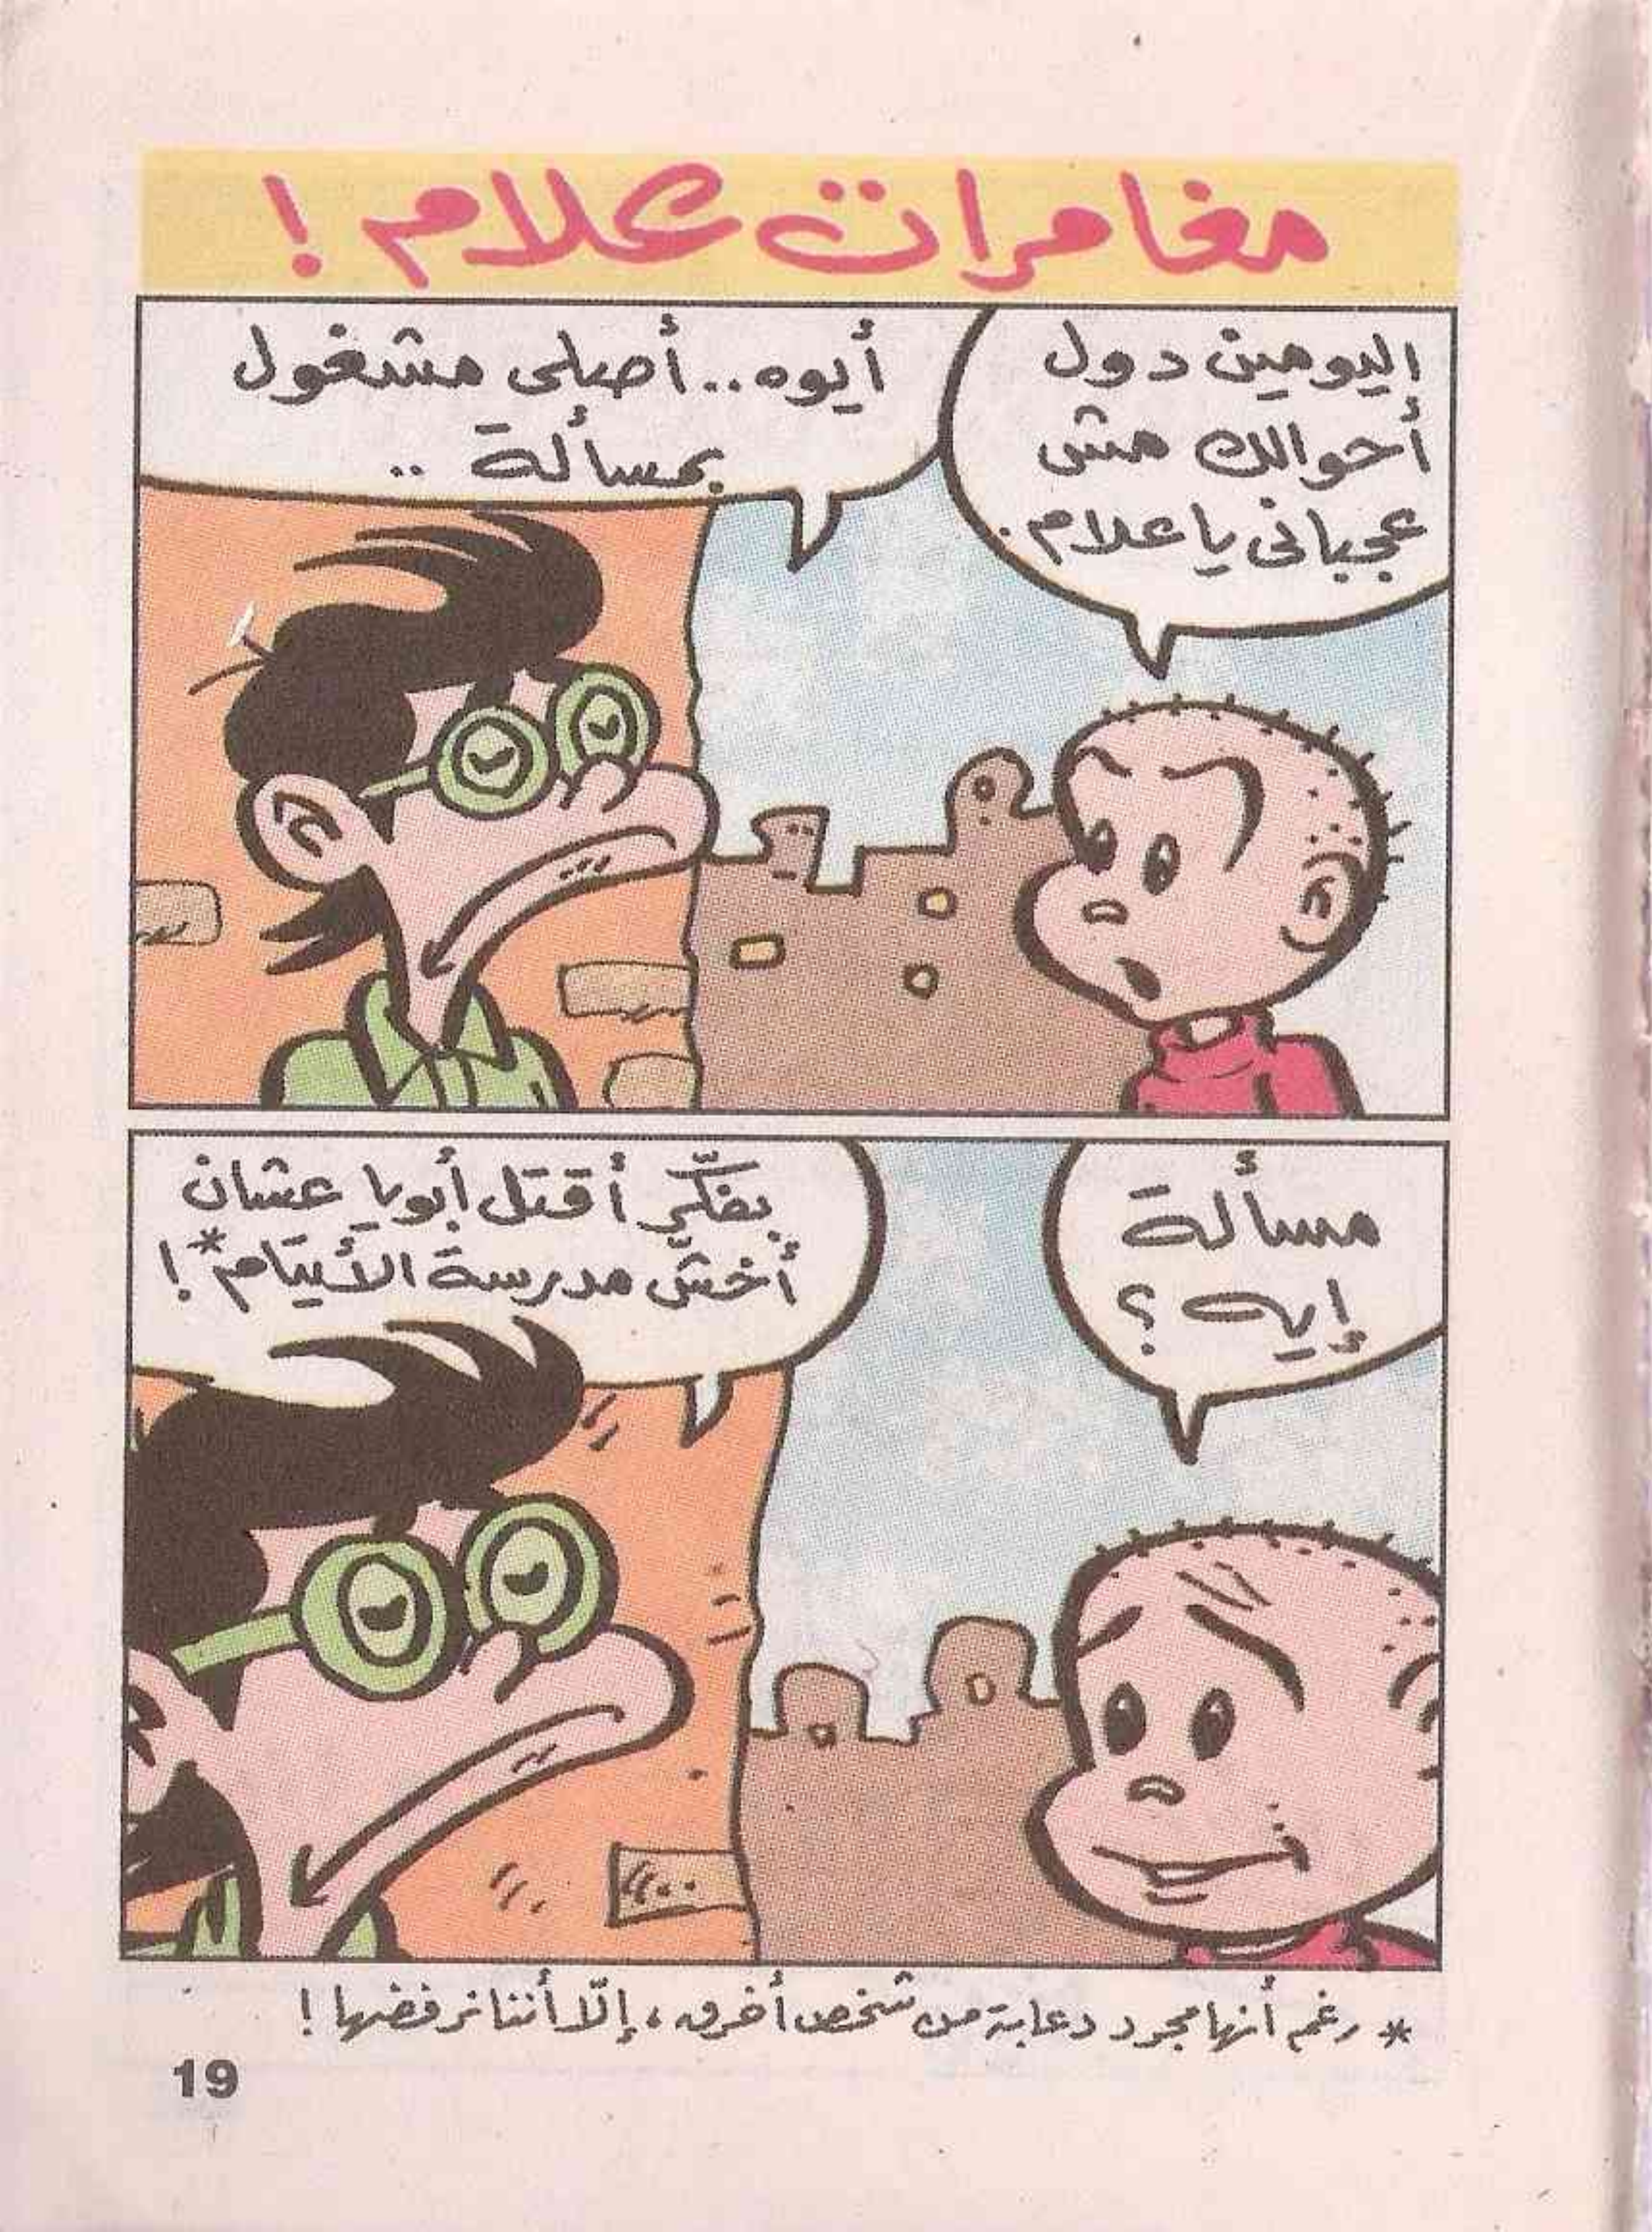 مغامرات علام !
اليومين دول
أحوالك مش
عجبانى يا علام.
أيوه.. أصلى مشغول
بمسألة ..
مسألة
إيه ؟
بفكّر أقتل أبويا عشان
أخشّ مدرسة الأيتام* !
* رغم أنها مجرد دعابة من شخص أخرق، إلّا أننا نرفضها !
19